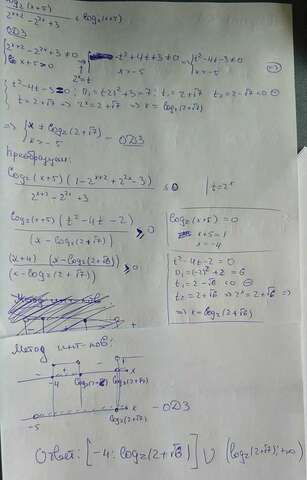 log₂(x+5)
2^(x+2) - 2^(2x) + 3 ≤ log₂(x+5)
ОДЗ
{ 2^(x+2) - 2^(2x) + 3 ≠ 0 ⇒ { -t²+4t+3 ≠ 0 { t²-4t-3 ≠ 0 ⇒
x+5>0 x>-5 x>-5
2^x=t
{ t²-4t-3=0; D₁=(-2)²+3=7; t₁=2+√7 t₂=2-√7<0
t=2+√7 ⇒ 2^x=2+√7 ⇒ x=log₂(2+√7)
⇒ { x ≠ log₂(2+√7)
x>-5 - ОДЗ
Преобразуем:
log₂(x+5)(1-2^(x+2)+2^(2x)-3) ≤ 0 | t=2^x
2^(x+2)-2^(2x)+3
log₂(x+5)(t²-4t-2) ≥ 0
(x-log₂(2+√7))
log₂(x+5)=0
x+5=1
x=-4
(x+4)(x-log₂(2+√6)) ≥ 0
(x-log₂(2+√7))
t²-4t-2=0
D₁=(-2)²+2=6
t₁=2-√6<0
t₂=2+√6 ⇒ 2^x=2+√6 ⇒
⇒ x=log₂(2+√6)
Метод инт-лов:
-4 log₂(2+√6) log₂(2+√7) x
-5 log₂(2+√7) x - ОДЗ
Ответ: [-4; log₂(2+√6)] ∪ (log₂(2+√7); +∞)